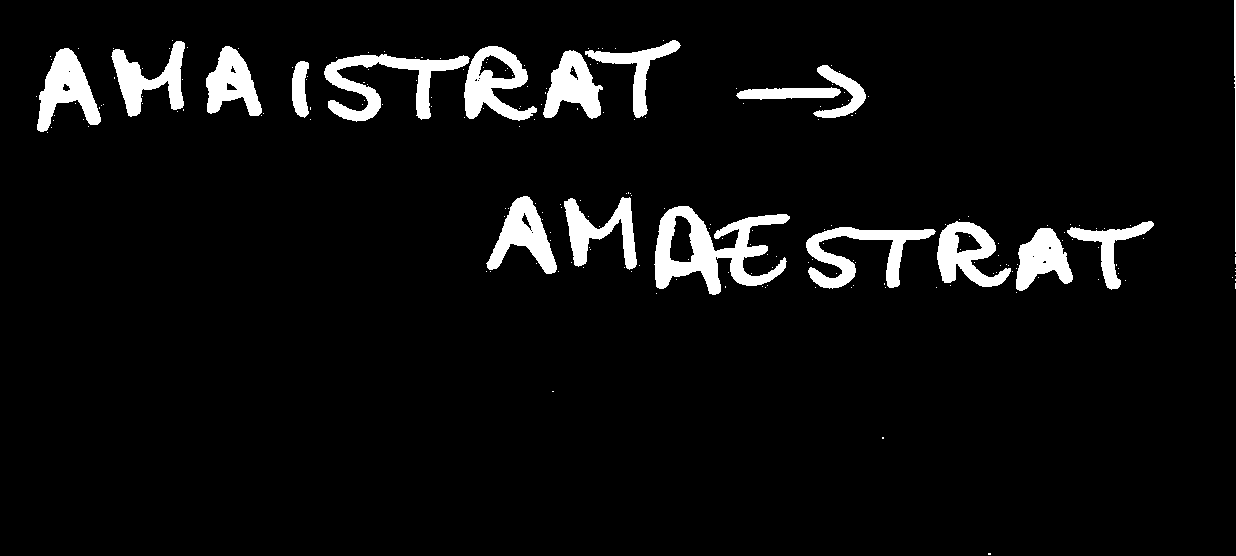 AMAISTRAT →
AMAESTRAT